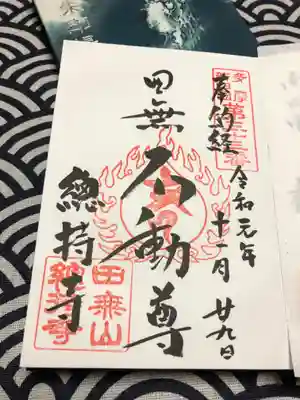 奉納経
令和元年
十一月廿九日
田無不動尊
總持寺
田無山
總持寺